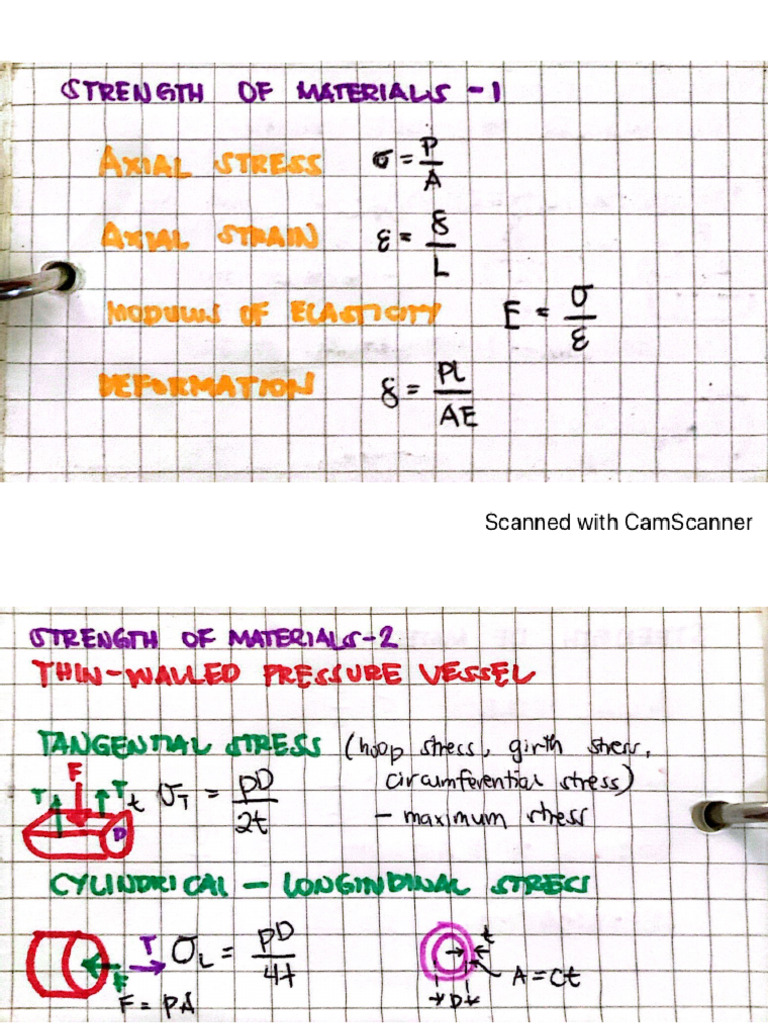 STRENGTH OF MATERIALS - 1
AXIAL STRESS σ = P/A
AXIAL STRAIN ε = δ/L
MODULUS OF ELASTICITY E = σ/ε
DEFORMATION δ = PL/AE
Scanned with CamScanner
STRENGTH OF MATERIALS-2
THIN-WALLED PRESSURE VESSEL
TANGENTIAL STRESS (hoop stress, girth stress,
circumferential stress)
F T T t D σT = pD/2t
- maximum stress
CYLINDRICAL - LONGINDINAL STRESS
T F σL = pD/4t
F = pA
t D A = ct